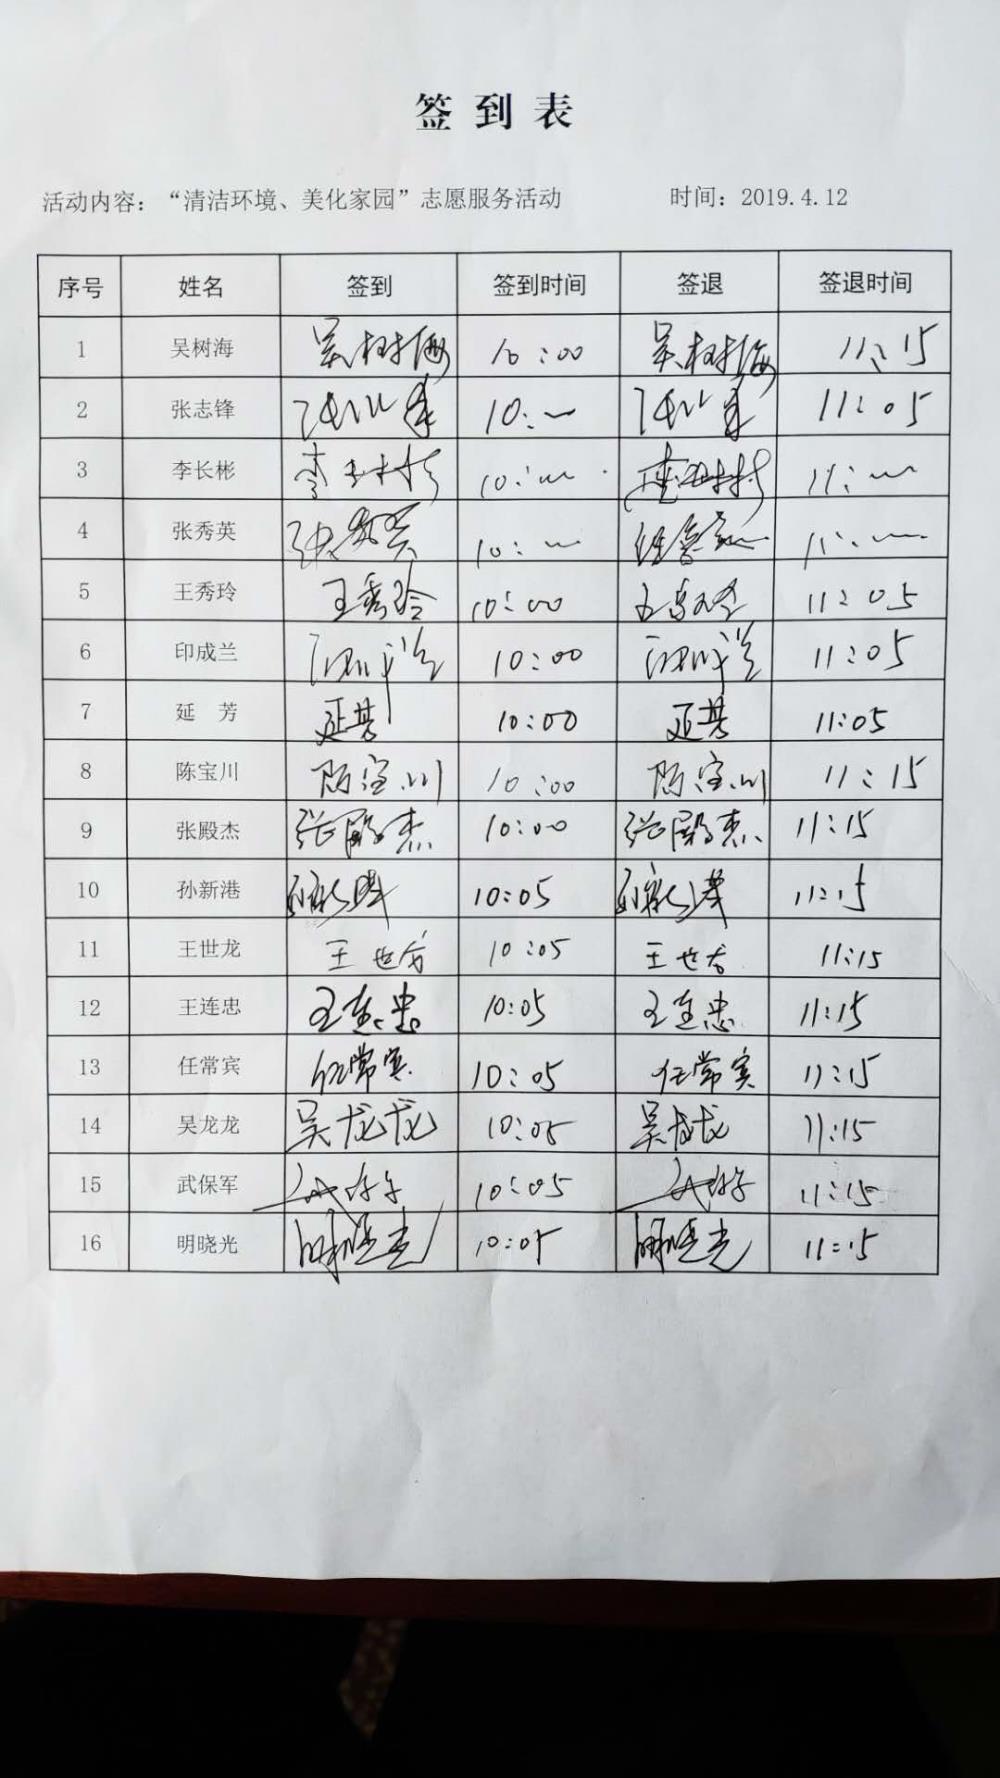 签到表
活动内容：“清洁环境、美化家园”志愿服务活动 时间：2019.4.12
序号 姓名 签到 签到时间 签退 签退时间
1 吴树海 吴树海 10:00 吴树海 11:15
2 张志锋 10: 11:05
3 李长彬 10: 11:
4 张秀英 10: 11:
5 王秀玲 王秀玲 10:00 11:05
6 印成兰 10:00 11:05
7 延 芳 延芳 10:00 延芳 11:05
8 陈宝川 陈宝川 10:00 陈宝川 11:15
9 张殿杰 张殿杰 10:00 张殿杰 11:15
10 孙新港 孙新港 10:05 孙新港 11:15
11 王世龙 王世龙 10:05 王世龙 11:15
12 王连忠 王连忠 10:05 王连忠 11:15
13 任常宾 任常宾 10:05 任常宾 11:15
14 吴龙龙 吴龙龙 10:05 吴龙龙 11:15
15 武保军 10:05 11:15
16 明晓光 明晓光 10:05 明晓光 11:15